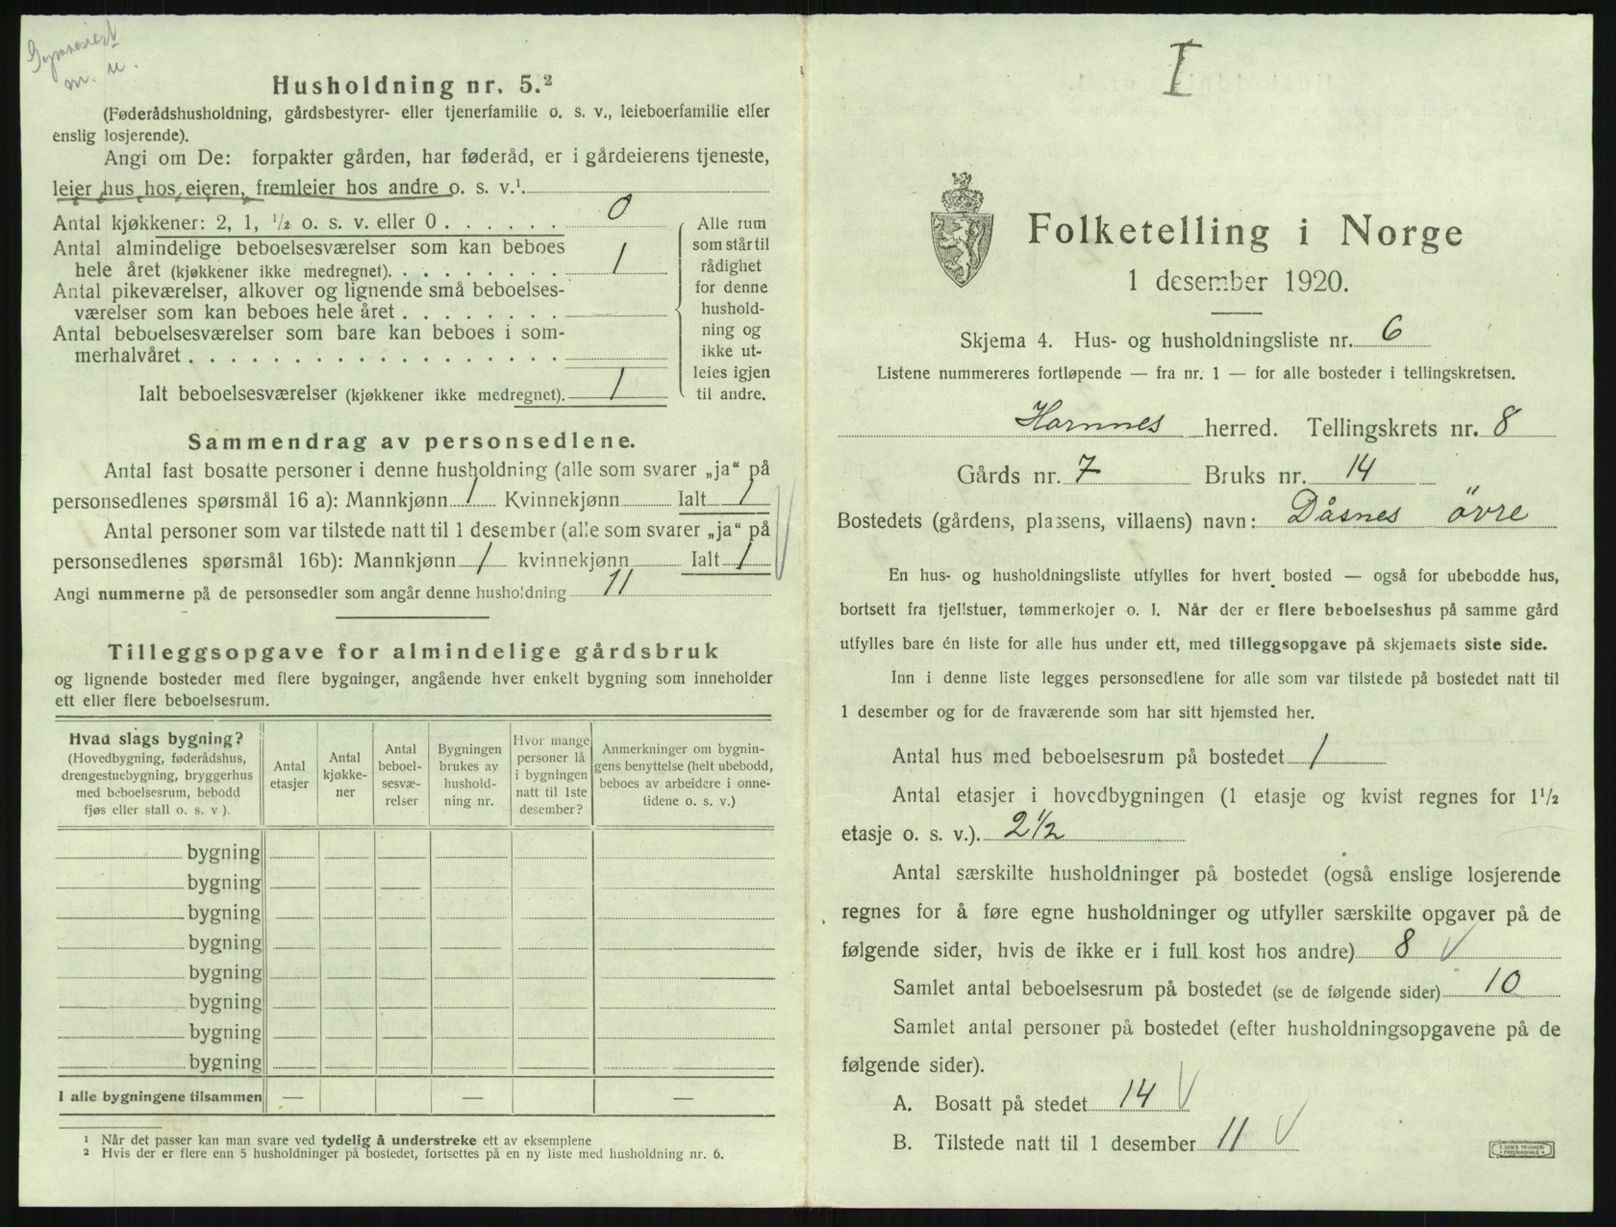 Gymnasiast
m. u.
Husholdning nr. 5.²
(Føderådshusholdning, gårdsbestyrer- eller tjenerfamilie o. s. v., leieboerfamilie eller
enslig losjerende).
Angi om De: forpakter gården, har føderåd, er i gårdeierens tjeneste,
leier hus hos eieren, fremleier hos andre o. s. v.¹
Antal kjøkkener: 2, 1, ½ o. s. v. eller 0 . . . . . . 0
Antal almindelige beboelsesværelser som kan beboes
hele året (kjøkkener ikke medregnet). . . . . . . . . 1
Antal pikeværelser, alkover og lignende små beboelses-
værelser som kan beboes hele året . . . . . . . .
Antal beboelsesværelser som bare kan beboes i som-
merhalvåret . . . . . . . . . . . . . . . . . .
Ialt beboelsesværelser (kjøkkener ikke medregnet). 1
Alle rum
som står til
rådighet
for denne
hushold-
ning og
ikke ut-
leies igjen
til andre.
Sammendrag av personsedlene.
Antal fast bosatte personer i denne husholdning (alle som svarer „ja“ på
personsedlenes spørsmål 16 a): Mannkjønn 1 Kvinnekjønn Ialt 1
Antal personer som var tilstede natt til 1 desember (alle som svarer „ja“ på
personsedlenes spørsmål 16b): Mannkjønn 1 kvinnekjønn Ialt 1
Angi nummerne på de personsedler som angår denne husholdning 11
Tilleggsopgave for almindelige gårdsbruk
og lignende bosteder med flere bygninger, angående hver enkelt bygning som inneholder
ett eller flere beboelsesrum.
Hvad slags bygning?
(Hovedbygning, føderådshus,
drengestuebygning, bryggerhus
med beboelsesrum, bebodd
fjøs eller stall o. s. v ).
Antal
etasjer
Antal
kjøkke-
ner
Antal
beboel-
sesvæ-
relser
Bygningen
brukes av
hushold-
ning nr.
Hvor mange
personer lå
i bygningen
natt til 1ste
desember?
Anmerkninger om bygnin-
gens benyttelse (helt ubebodd,
beboes av arbeidere i onne-
tidene o. s. v.)
bygning
bygning
bygning
bygning
bygning
bygning
bygning
bygning
I alle bygningene tilsammen — — —
¹ Når det passer kan man svare ved tydelig å understreke ett av eksemplene
² Hvis der er flere enn 5 husholdninger på bostedet, fortsettes på en ny liste med husholdning nr. 6.
I
Folketelling i Norge
1 desember 1920.
Skjema 4. Hus- og husholdningsliste nr. 6
Listene nummereres fortløpende — fra nr. 1 — for alle bosteder i tellingskretsen.
Hornnes herred. Tellingskrets nr. 8
Gårds nr. 7 Bruks nr. 14
Bostedets (gårdens, plassens, villaens) navn: Dåsnes övre
En hus- og husholdningsliste utfylles for hvert bosted — også for ubebodde hus,
bortsett fra fjellstuer, tømmerkojer o. l. Når der er flere beboelseshus på samme gård
utfylles bare én liste for alle hus under ett, med tilleggsopgave på skjemaets siste side.
Inn i denne liste legges personsedlene for alle som var tilstede på bostedet natt til
1 desember og for de fraværende som har sitt hjemsted her.
Antal hus med beboelsesrum på bostedet 1
Antal etasjer i hovedbygningen (1 etasje og kvist regnes for 1½
etasje o. s. v.). 2½
Antal særskilte husholdninger på bostedet (også enslige losjerende
regnes for å føre egne husholdninger og utfyller særskilte opgaver på de
følgende sider, hvis de ikke er i full kost hos andre) 8
Samlet antal beboelsesrum på bostedet (se de følgende sider) 10
Samlet antal personer på bostedet (efter husholdningsopgavene på de
følgende sider).
A. Bosatt på stedet 14
B. Tilstede natt til 1 desember 11